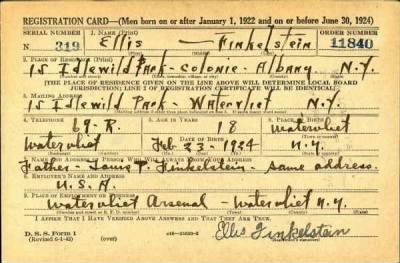 REGISTRATION CARD—(Men born on or after January 1, 1922 and on or before June 30, 1924)
SERIAL NUMBER 1. NAME (Print) ORDER NUMBER
N 319 Ellis — Finkelstein 11840
2. PLACE OF RESIDENCE (Print)
15 Idlewild Park - Colonie - Albany N.Y.
[THE PLACE OF RESIDENCE GIVEN ON THE LINE ABOVE WILL DETERMINE LOCAL BOARD
JURISDICTION; LINE 2 OF REGISTRATION CERTIFICATE WILL BE IDENTICAL]
3. MAILING ADDRESS
15 Idlewild Park - Watervliet N.Y.
4. TELEPHONE 5. AGE IN YEARS 6. PLACE OF BIRTH
69-R. 18 Watervliet
DATE OF BIRTH
Watervliet Feb 23 - 1924 N.Y.
7. NAME AND ADDRESS OF PERSON WHO WILL ALWAYS KNOW YOUR ADDRESS
Father - Finkelstein - same address
8. EMPLOYER'S NAME AND ADDRESS
U.S.A.
9. PLACE OF EMPLOYMENT OR BUSINESS
Watervliet Arsenal - Watervliet N.Y.
I AFFIRM THAT I HAVE VERIFIED ABOVE ANSWERS AND THAT THEY ARE TRUE.
D. S. S. Form 1
(Revised 6-1-42) (over) Ellis Finkelstein